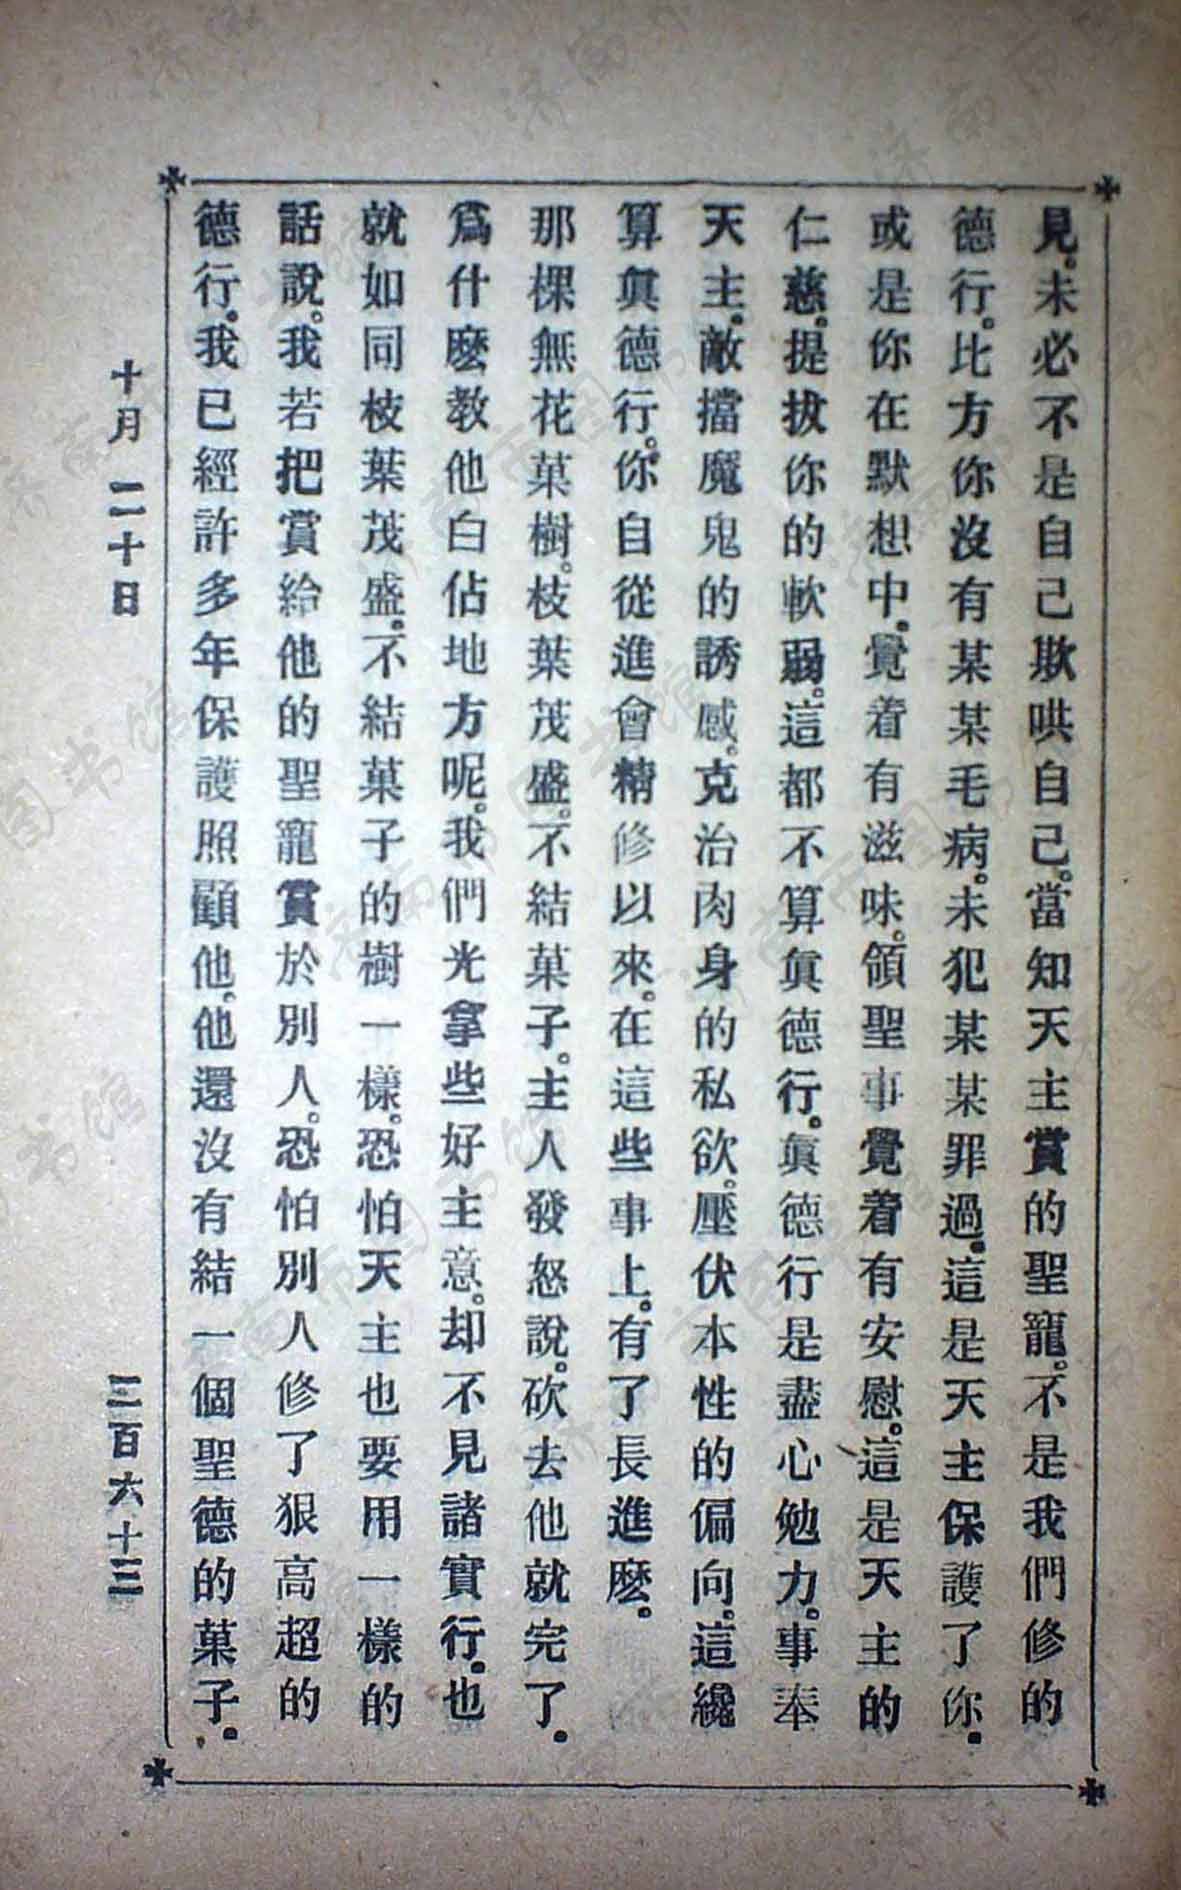 見。未必不是自己欺哄自己。當知天主賞的聖寵。不是我們修的
德行。比方你沒有某某毛病。未犯某某罪過。這是天主保護了你。
或是你在默想中。覺着有滋味。領聖事覺着有安慰。這是天主的
仁慈。提拔你的軟弱。這都不算眞德行。眞德行是盡心勉力。事奉
天主。敵擋魔鬼的誘感。克治肉身的私欲。壓伏本性的偏向。這纔
算眞德行。你自從進會精修以來。在這些事上。有了長進麽。
那棵無花菓樹。枝葉茂盛。不結菓子。主人發怒說。砍去他就完了。
爲什麽教他白佔地方呢。我們光拿些好主意。却不見諸實行。也
就如同枝葉茂盛。不結菓子的樹一樣。恐怕天主也要用一樣的
話說。我若把賞給他的聖寵賞於別人。恐怕別人修了狠高超的
德行。我已經許多年保護照顧他。他還沒有結一個聖德的菓子。
十月二十日
三百六十三